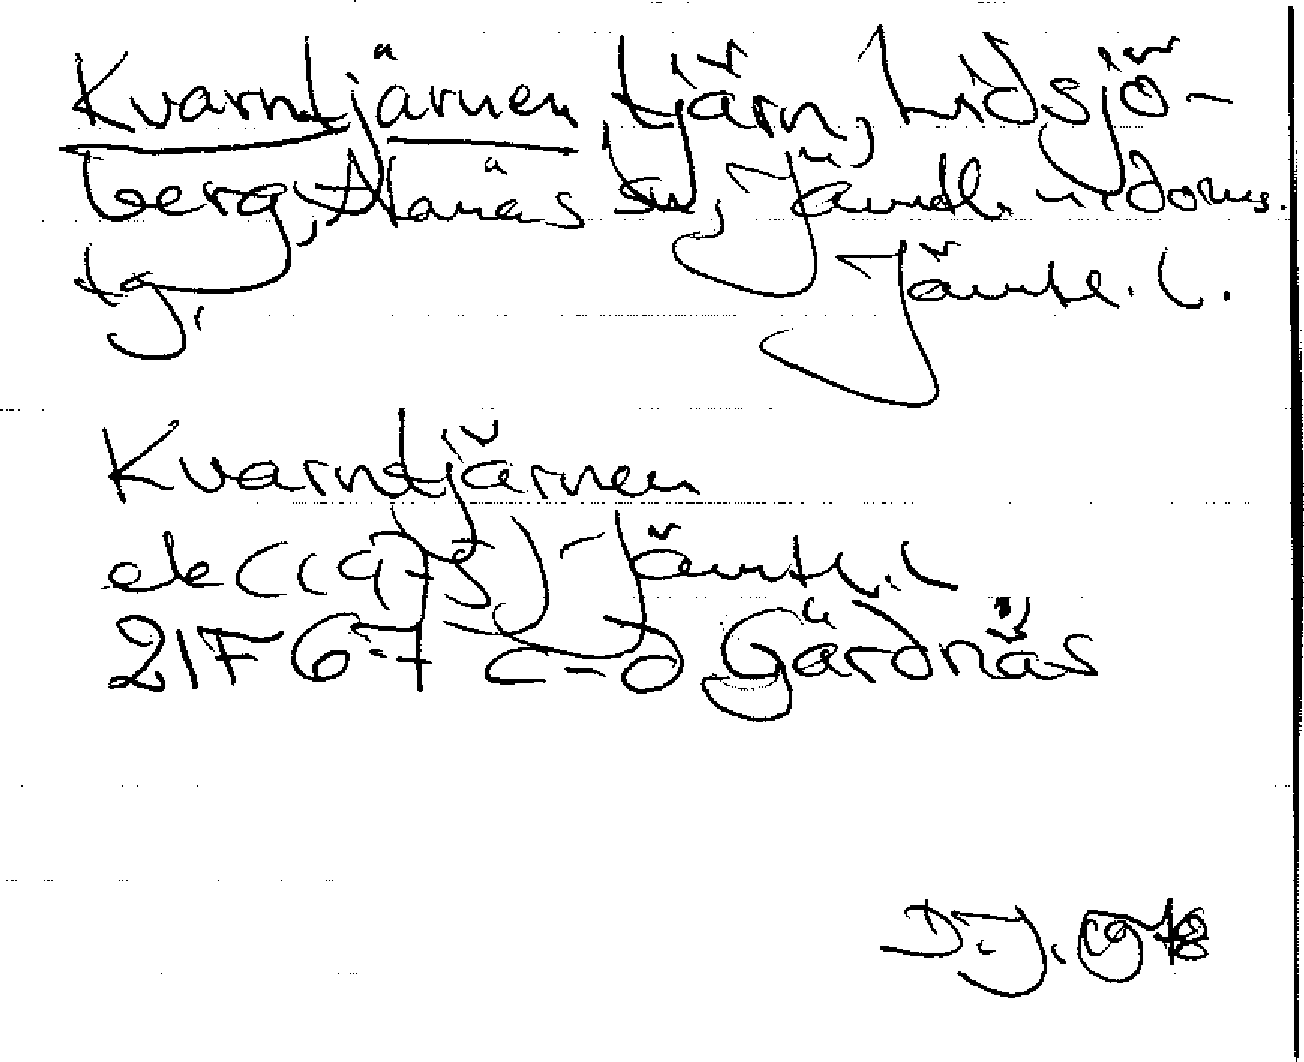 Kvarntjärnen, tjärn, Lidsjö-
berg, Alanäs sn, Jämtl. n:a doms.
tg,
Jämtl. l.
Kvarntjärnen
ek (1973) Jämtl. l
21F 6-7 c-d Gärdnäs
D.J. 1978